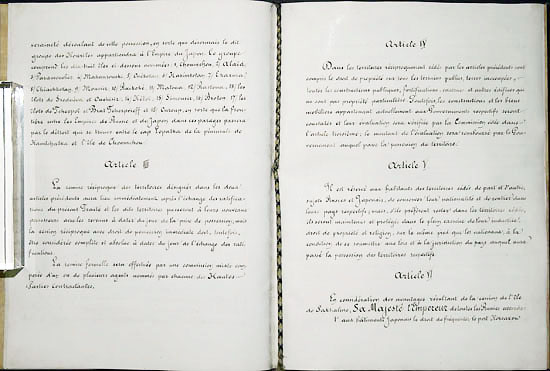 verainété découlant de cette possession, en sorte que désormais le dit
groupe des Kouriles appartiendra à l'Empire du Japon. Ce groupe
comprend les dix huit îles ci dessous nommées: 1, Choumchou, 2, Alaïd,
3, Paramouchir, 4, Makanrouchi, 5, Onékotan, 6, Harimkotan, 7, Ekarma,
8, Chiachkotan, 9, Moussir, 10, Raikoké, 11, Matoua, 12, Rastoua, 13, les
îlots de Srednéva et Ouchicir, 14, Kétoï, 15, Simousir, 16, Broton, 17, les
îlots de Tchirpoï et Brat Tchirpoëff et 18, Ouroup, en sorte que la fron-
tière entre les Empires de Russie et du Japon dans ces parages passera
par le détroit qui se trouve entre le cap Lopatka de la péninsule de
Kamtchatka et l'île de Choumchou.
Article III
La remise réciproque des territoires désignés dans les deux
articles précédents aura lieu immédiatement après l'échange des ratifica-
tions du présent Traité et les dits territoires passeront à leurs nouveaux
possesseurs avec les revenus à dater du jour de la prise de possession, mais
la cession réciproque avec droit de possession immédiate doit, toutefois,
être considérée complète et absolue à dater du jour de l'échange des rati-
fications.
La remise formelle sera effectuée par une commission mixte com-
posée d'un ou de plusieurs agents nommés par chacune des Hautes
Parties Contractantes.
Article IV
Dans les territoires réciproquement cédés par les articles précédents est
compris le droit de propriété sur tous les terrains publics, terres inoccupées,
toutes les constructions publiques, fortifications, casernes et autres édifices qui
ne sont pas propriété particulière. Toutefois, les constructions et les biens
mobiliers appartenant actuellement aux Gouvernements respectifs seront
constatés et leur évaluation sera vérifiée par la Commission citée dans
l'article troisième; le montant de l'évaluation sera remboursé par le Gou-
vernement auquel passe la possession du territoire.
Article V
Il est réservé aux habitants des territoires cédés de part et d'autre,
sujets Russes et Japonais, de conserver leur nationalité et de rentrer dans
leurs pays respectifs; mais, s'ils préfèrent rester dans les territoires cédés,
ils seront maintenus et protégés dans le plein exercice de leur industrie,
droit de propriété et religion, sur le même pied que les nationaux, à la
condition de se soumettre aux lois et à la juridiction du pays auquel aura
passé la possession des territoires respectifs.
Article VI
En considération des avantages résultant de la cession de l'île
de Sakhaline, Sa Majesté l'Empereur de toutes les Russies accorde:
1° aux bâtiments Japonais le droit de fréquenter le port Korsakow